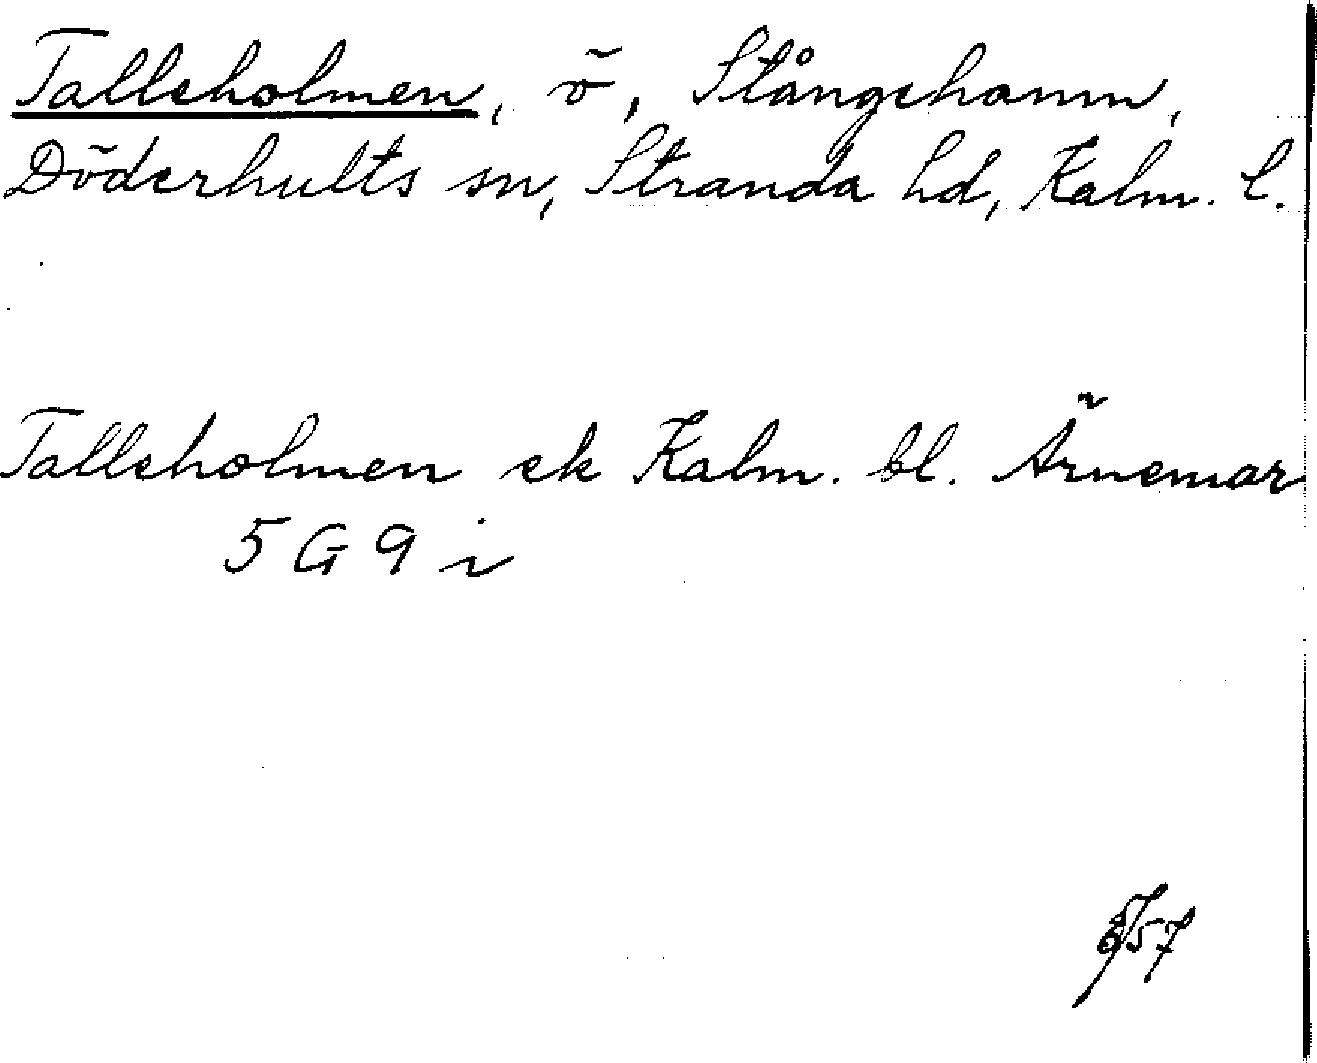 Talleholmen, ö, Stångehamn,
Döderhults sn, Stranda hd, Kalm. l.
Talleholmen ek Kalm. bl. Ärnemar
5 G 9 i